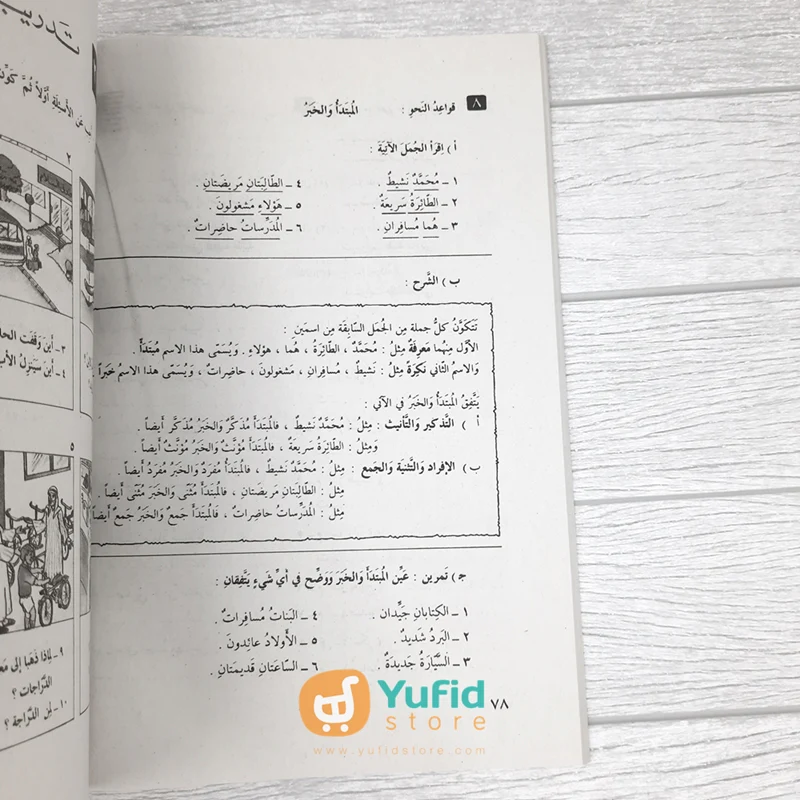 ٨ قواعِدُ النَحوِ : المُبتَدَأُ وَالخَبَرُ
أ ) اِقرَأ الجُمَلَ الآتِيَةَ :
١ ــ مُحَمَّدٌ نَشيطٌ .
٢ ــ الطّائِرَةُ سَريعَةٌ .
٣ ــ هُما مُسافِرانِ .
٤ ــ الطّالِبَتانِ مَريضَتانِ .
٥ ــ هَؤلاءِ مَشغولونَ .
٦ ــ المُدَرِّساتُ حاضِراتٌ .
ب ) الشَّرح :
تَتَكَوَّنُ كلُّ جملة مِن الجُمَل السّابِقَة مِن اسمَينِ :
الأوَّل مِنهُما مَعرِفَةٌ مِثلُ : مُحَمَّدٌ ، الطّائِرَةُ ، هُما ، هؤلاءِ . وَيُسَمّى هذا الاسم مُبتَدَأً .
وَالاسمُ الثّاني نَكِرَةٌ مِثلُ : نَشيطٌ ، مُسافِرانِ ، مَشغولونَ ، حاضِرات ، وَيُسَمّى هذا الاسمُ خَبَراً
يَتَّفِقُ المُبتَدَأ وَالخَبَرُ في الآتي :
أ ) التَّذكير وَالتَّأنيث : مِثلُ : مُحَمَّدٌ نَشيطٌ ، فالمُبتَدَأ مُذَكَّرٌ وَالخَبَرُ مُذَكَّر أيضاً .
وَمِثلُ : الطّائِرَة سَريعَةٌ ، فالمُبتَدَأ مُؤَنَّثٌ وَالخَبَرُ مُؤَنَّثٌ أيضاً .
ب ) الإفراد وَالتَّثنِيَة وَالجَمع : مِثلُ : مُحَمَّدٌ نَشيطٌ ، فالمُبتَدَأُ مُفرَدٌ وَالخَبَرُ مُفرَدٌ أيضاً .
مِثلُ : الطّالِبَتانِ مَريضَتانِ ، فالمُبتَدَأ مُثَنّى وَالخَبَرُ مُثَنّى أيضاً .
مِثلُ : المُدَرِّساتُ حاضِراتٌ ، فَالمُبتَدَأ جَمعٌ وَالخَبَرُ جَمعٌ أيضاً
جـ ) تَمرين : عَيِّن المُبتَدَأَ وَالخَبَرَ وَوَضِّح في أيِّ شَيءٍ يَتَّفِقانِ :
١ ــ الكِتابانِ جَيِّدان .
٢ ــ البَردُ شَديدٌ .
٣ ــ السَّيّارَةُ جَديدَةٌ .
٤ ــ البَناتُ مُسافِراتٌ .
٥ ــ الأَولادُ عائِدونَ .
٦ ــ السّاعَتانِ قَديمَتانِ .
٧٨
Yufid
store
www.yufidstore.com
تَدريب
عَن الأسئِلَةِ أَوَّلاً ثُمَّ كَوِّن
٢
٣ ــ أين وَقَفَت
٤ ــ أين سَيَنزِلُ
٥
٩ ــ لِماذا ذَهَبا إلى
الدَّراجات ؟
١٠ ــ لِمَن الدَّراجة ؟